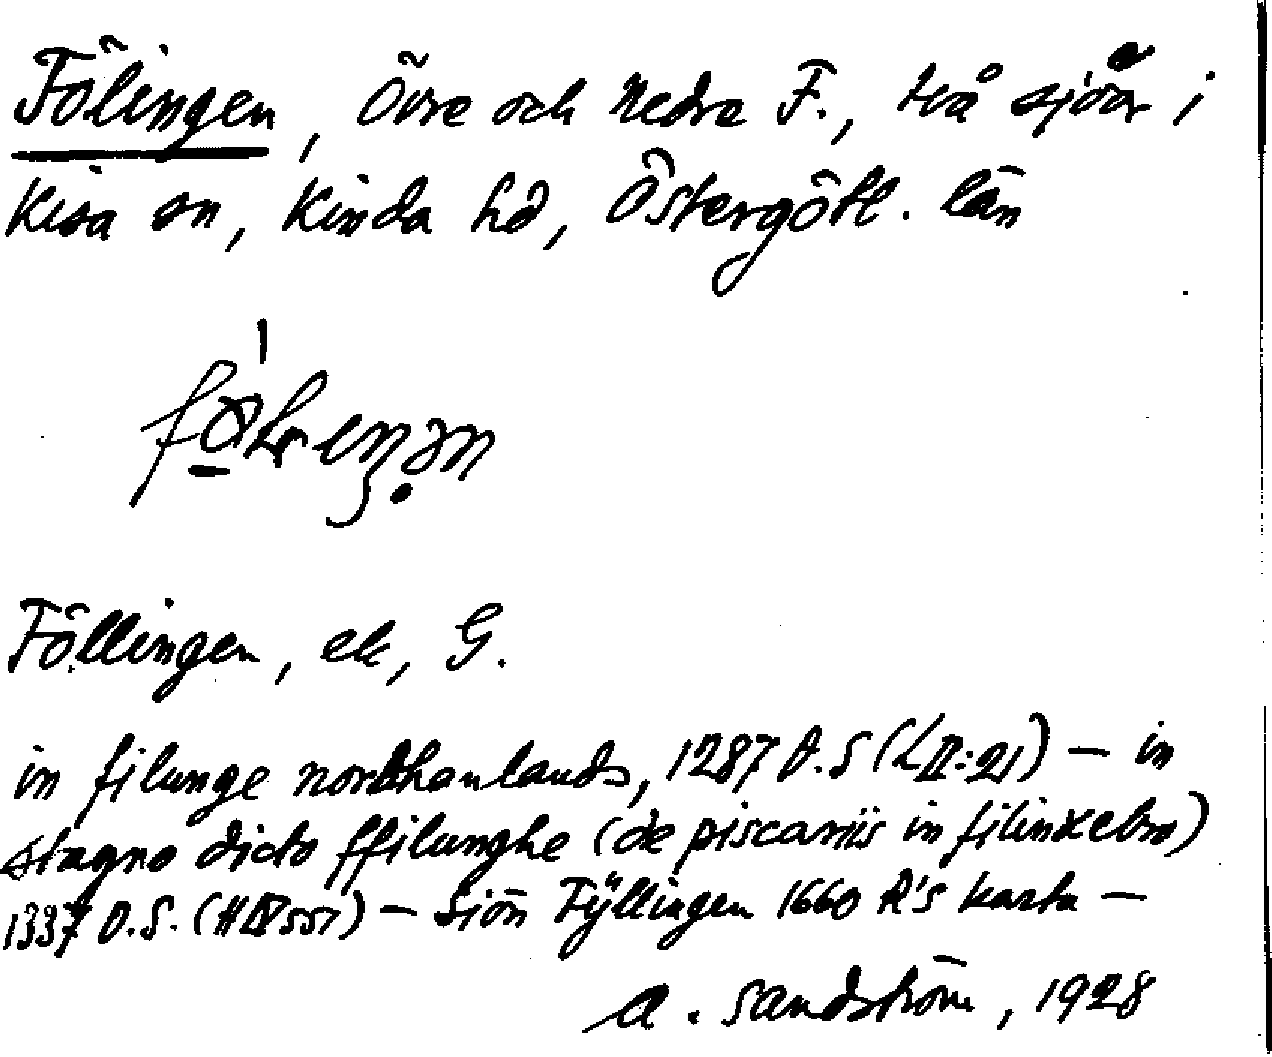 Fölingen, Övre och Nedre F., två sjöar i
Kisa sn, Kinda hd, Östergötl. län
Föllingen, ek, G.
in filunge nordhanlands, 1287 D.S (LII:21) — in
stagno dicto ffilunghe (de piscariis in filinxebro)
1337 D.S. (HIV 551) — Siön Fÿllingen 1660 R's karta —
A. Sandström, 1928